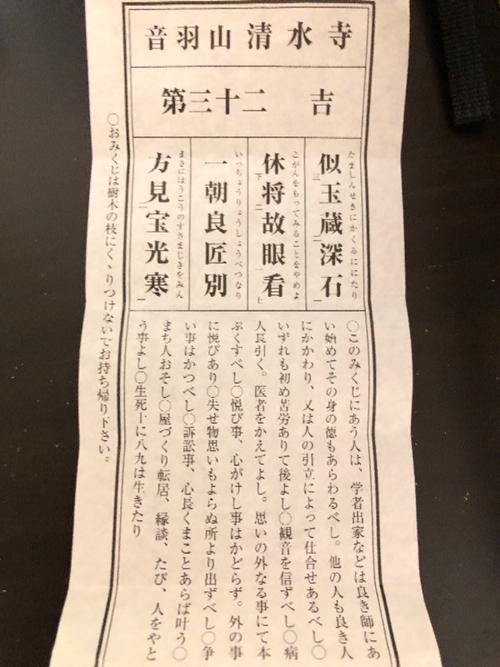 音羽山 清水寺
第三十二 吉
たましんせきにかくるににたり
似玉蔵深石
こがんをもってみることをやめよ
休将故眼看
いっちょうりょうしょうべつなり
一朝良匠別
まさにほうこうのすさまじきをみん
方見宝光寒
○このみくじにあう人は、学者出家などは良き師にあ
い始めてその身の徳もあらわるべし。他の人も良き人
にかかわり、又は人の引立によって仕合せあるべし○
いずれも初め苦労ありて後よし○観音を信ずべし○病
人長引く。医者をかえてよし。思いの外なる事にて本
ぶくすべし○悦び事、心がけし事はかどらず。外の事
に悦びあり○失せ物思いもよらぬ所より出ずべし○争
い事はかつべし○訴訟事、心長くまことあらば叶う○
まち人おそし○屋づくり転居、縁談、たび、人をやと
う事よし○生死十に八九は生きたり
○おみくじは樹木の枝にくゝりつけないでお持ち帰り下さい。